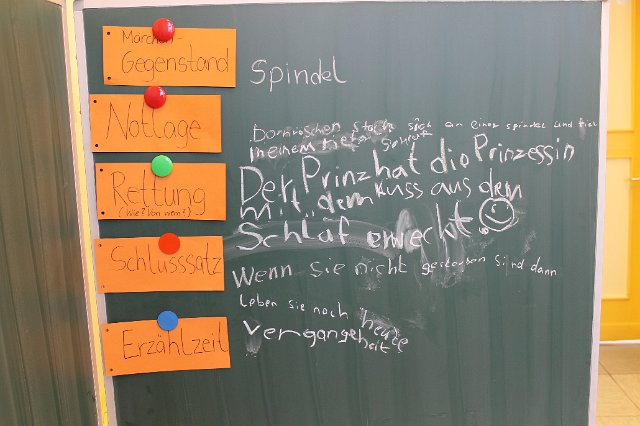 Märchen-
Gegenstand
Spindel
Notlage
Dornröschen stach sich an einer spindel und fiel
Rettung
(Wie? Von wem?)
Der Prinz hat die Prinzessin
mit dem Kuss aus dem
Schlaf erweckt.
Schlusssatz
Wenn sie nicht gestorben sind dann
Leben sie noch heute
Erzählzeit
Vergangenheit